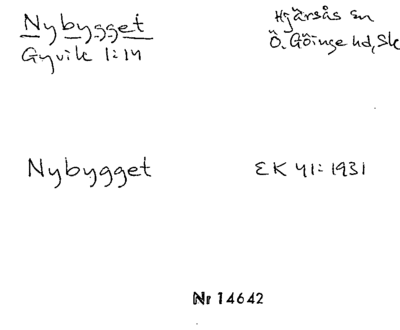 Nybygget
Gyvik 1:14
Hjärsås sn
Ö. Göinge hd, Sk
Nybygget
EK 41:1931
Nr 14642